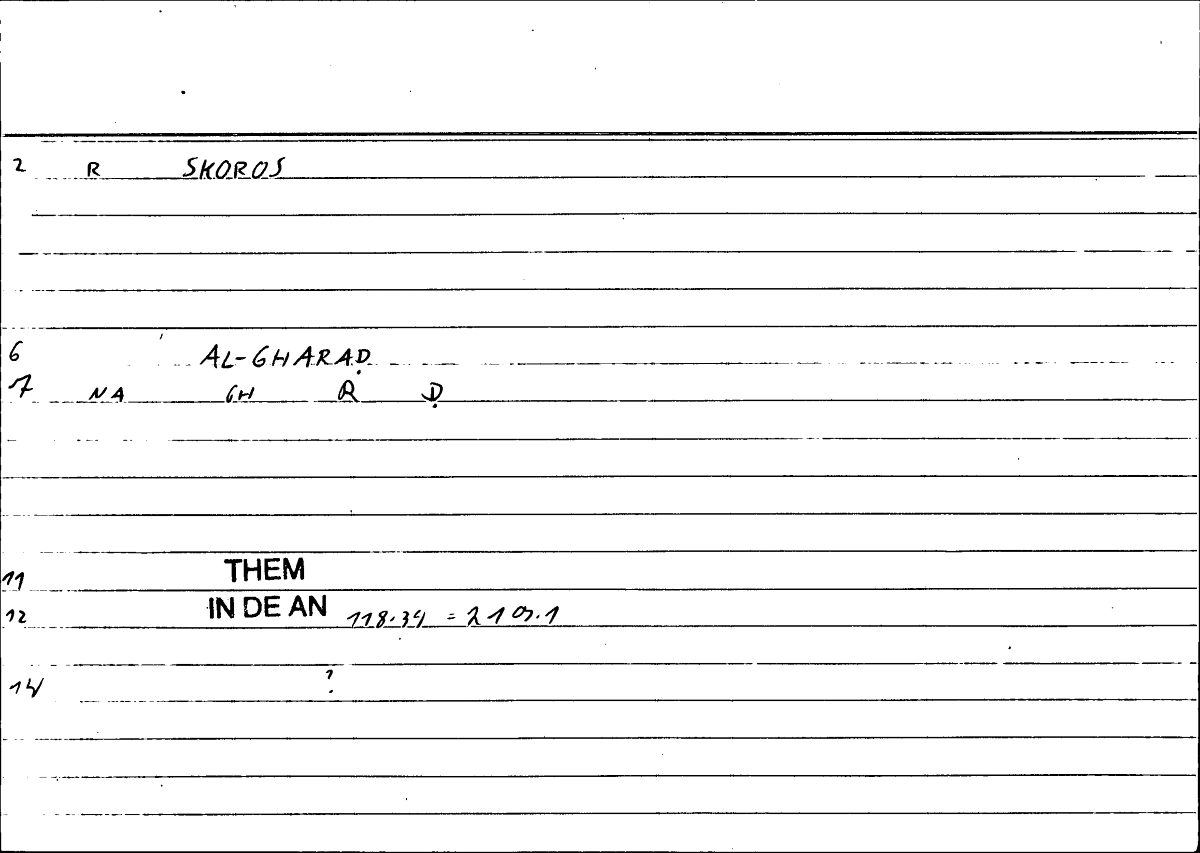 2 R SKOROS
6 AL-GHARAḌ
7 NA GH R Ḍ
11 THEM
12 IN DE AN 118.34 =
14 ?